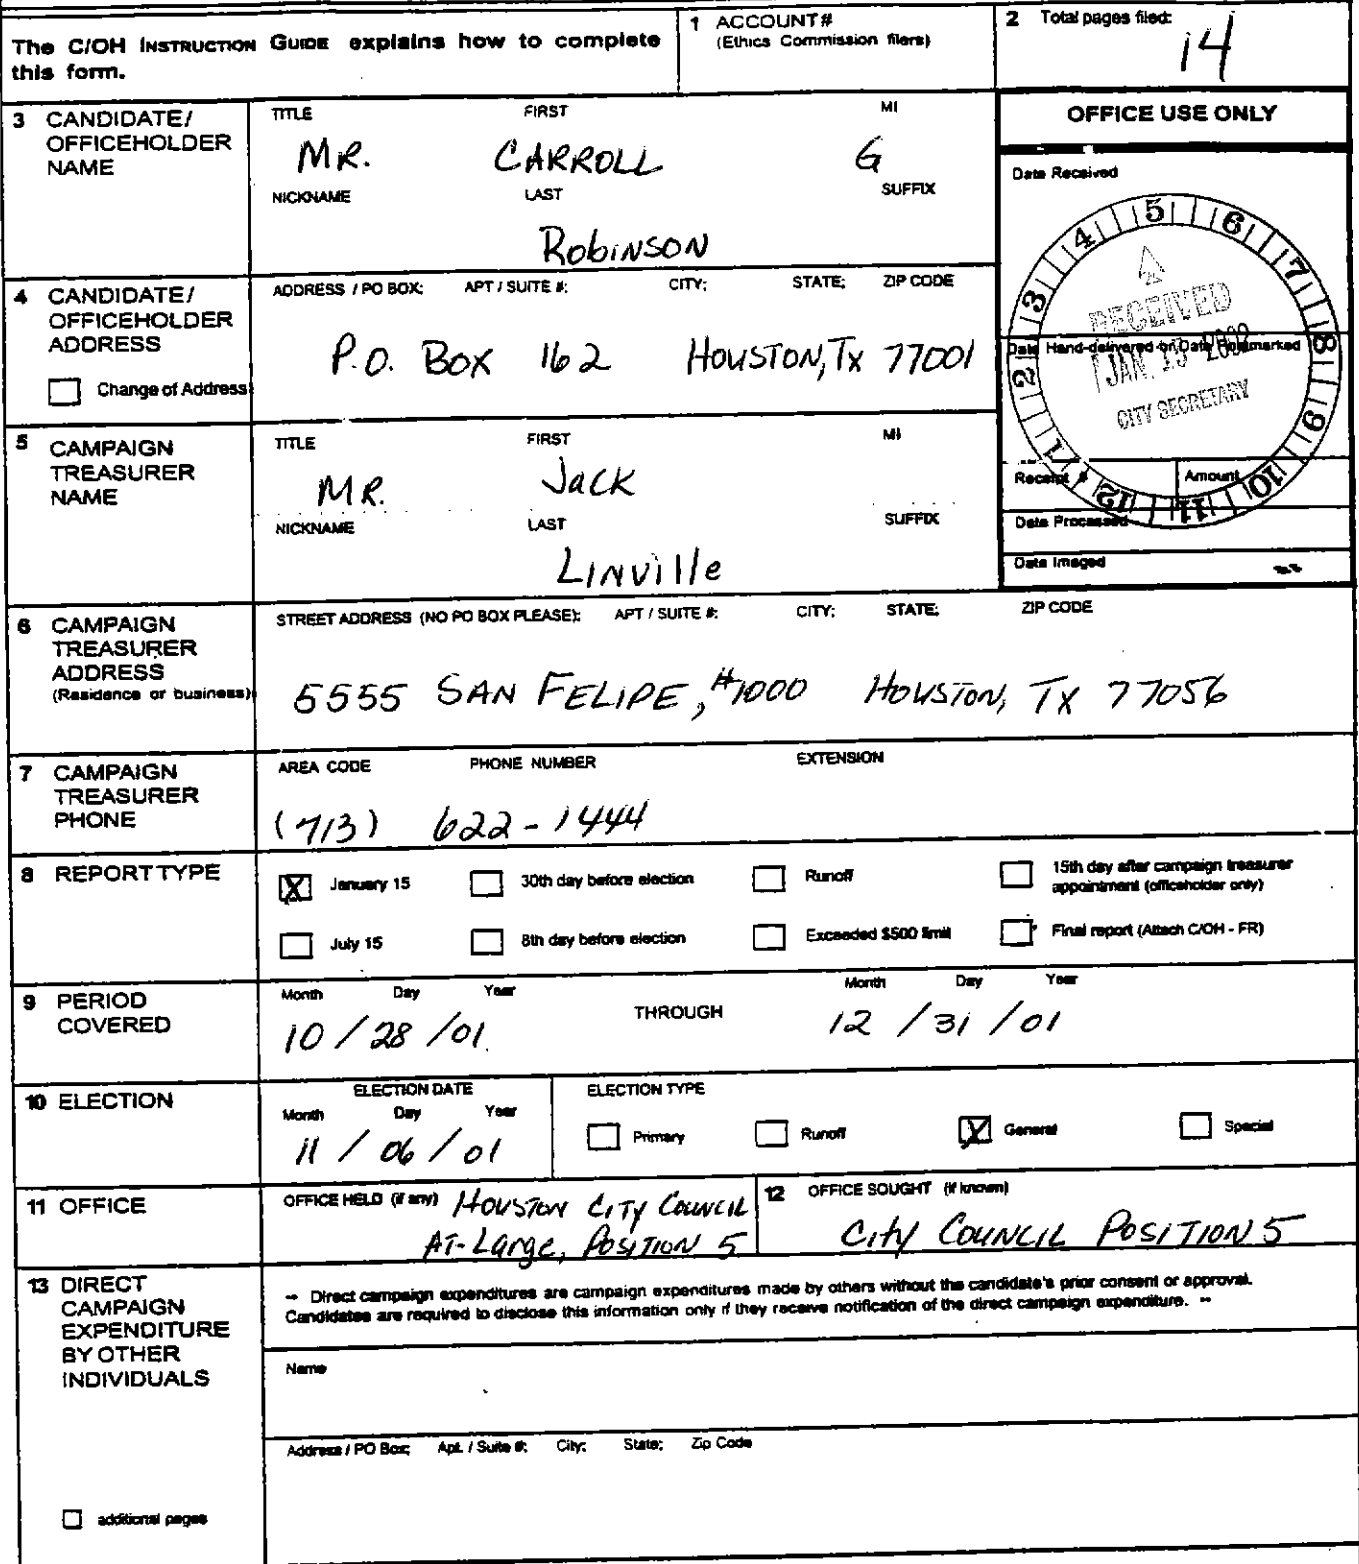 The C/OH INSTRUCTION GUIDE explains how to complete this form.
1 ACCOUNT#
(Ethics Commission filers)
2 Total pages filed:
14
3 CANDIDATE/
OFFICEHOLDER
NAME
TITLE FIRST MI
MR. CARROLL G
NICKNAME LAST SUFFIX
Robinson
OFFICE USE ONLY
Date Received
1 2 3 4 5 6 7 8 9 10 11 12
RECEIVED
JAN. 2002
CITY SECRETARY
Date Hand-delivered or Date Postmarked
Receipt # Amount
Date Processed
Date Imaged
4 CANDIDATE/
OFFICEHOLDER
ADDRESS
Change of Address
ADDRESS / PO BOX; APT / SUITE #; CITY; STATE; ZIP CODE
P.O. BOX 162 HOUSTON, Tx 77001
5 CAMPAIGN
TREASURER
NAME
TITLE FIRST MI
MR. JACK
NICKNAME LAST SUFFIX
LINVIlle
6 CAMPAIGN
TREASURER
ADDRESS
(Residence or business)
STREET ADDRESS (NO PO BOX PLEASE); APT / SUITE #; CITY; STATE; ZIP CODE
5555 SAN FELIPE, #1000 HOUSTON, TX 77056
7 CAMPAIGN
TREASURER
PHONE
AREA CODE PHONE NUMBER EXTENSION
(713) 622-1444
8 REPORT TYPE
X January 15 30th day before election Runoff 15th day after campaign treasurer appointment (officeholder only)
July 15 8th day before election Exceeded $500 limit Final report (Attach C/OH - FR)
9 PERIOD
COVERED
Month Day Year THROUGH Month Day Year
10 / 28 / 01 12 / 31 / 01
10 ELECTION
ELECTION DATE
Month Day Year
11 / 06 / 01
ELECTION TYPE
Primary Runoff X General Special
11 OFFICE
OFFICE HELD (if any) HOUSTON CITY COUNCIL
AT-Large, POSITION 5
12 OFFICE SOUGHT (if known)
City COUNCIL POSITION 5
13 DIRECT
CAMPAIGN
EXPENDITURE
BY OTHER
INDIVIDUALS
additional pages
-- Direct campaign expenditures are campaign expenditures made by others without the candidate's prior consent or approval.
Candidates are required to disclose this information only if they receive notification of the direct campaign expenditure. --
Name
Address / PO Box; Apt. / Suite #; City; State; Zip Code